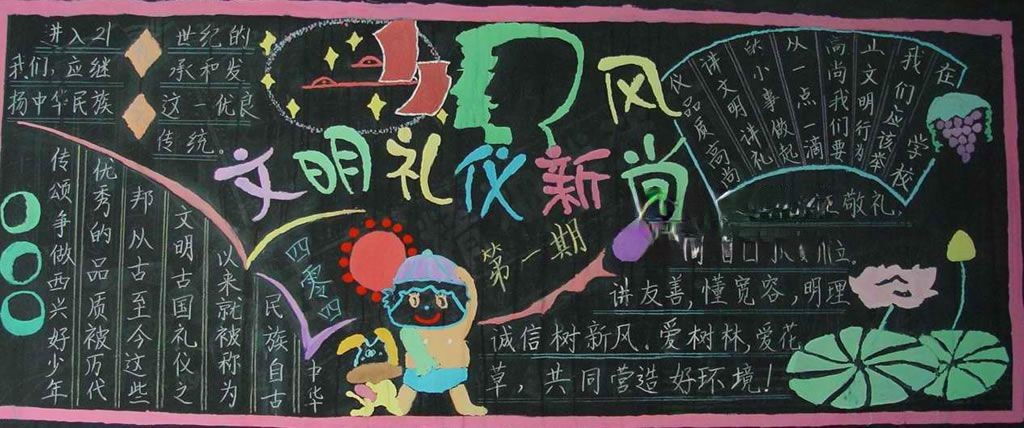 进入21世纪的
我们,应继承和发
扬中华民族这一优良
传统。
文明礼仪新风尚
第一期
四零四
中华
民族自古
以来就被称为
文明古国礼仪之
邦从古至今这些
优秀的品质被历代
传颂争做西兴好少年
在学校
我们应该举
止文明行为
高尚我们要
从一点一滴
小事做起
讲文明讲礼
仪品质高尚
敬礼.
讲友善,懂宽容,明理
诚信树新风.爱树林,爱花
草,共同营造好环境!